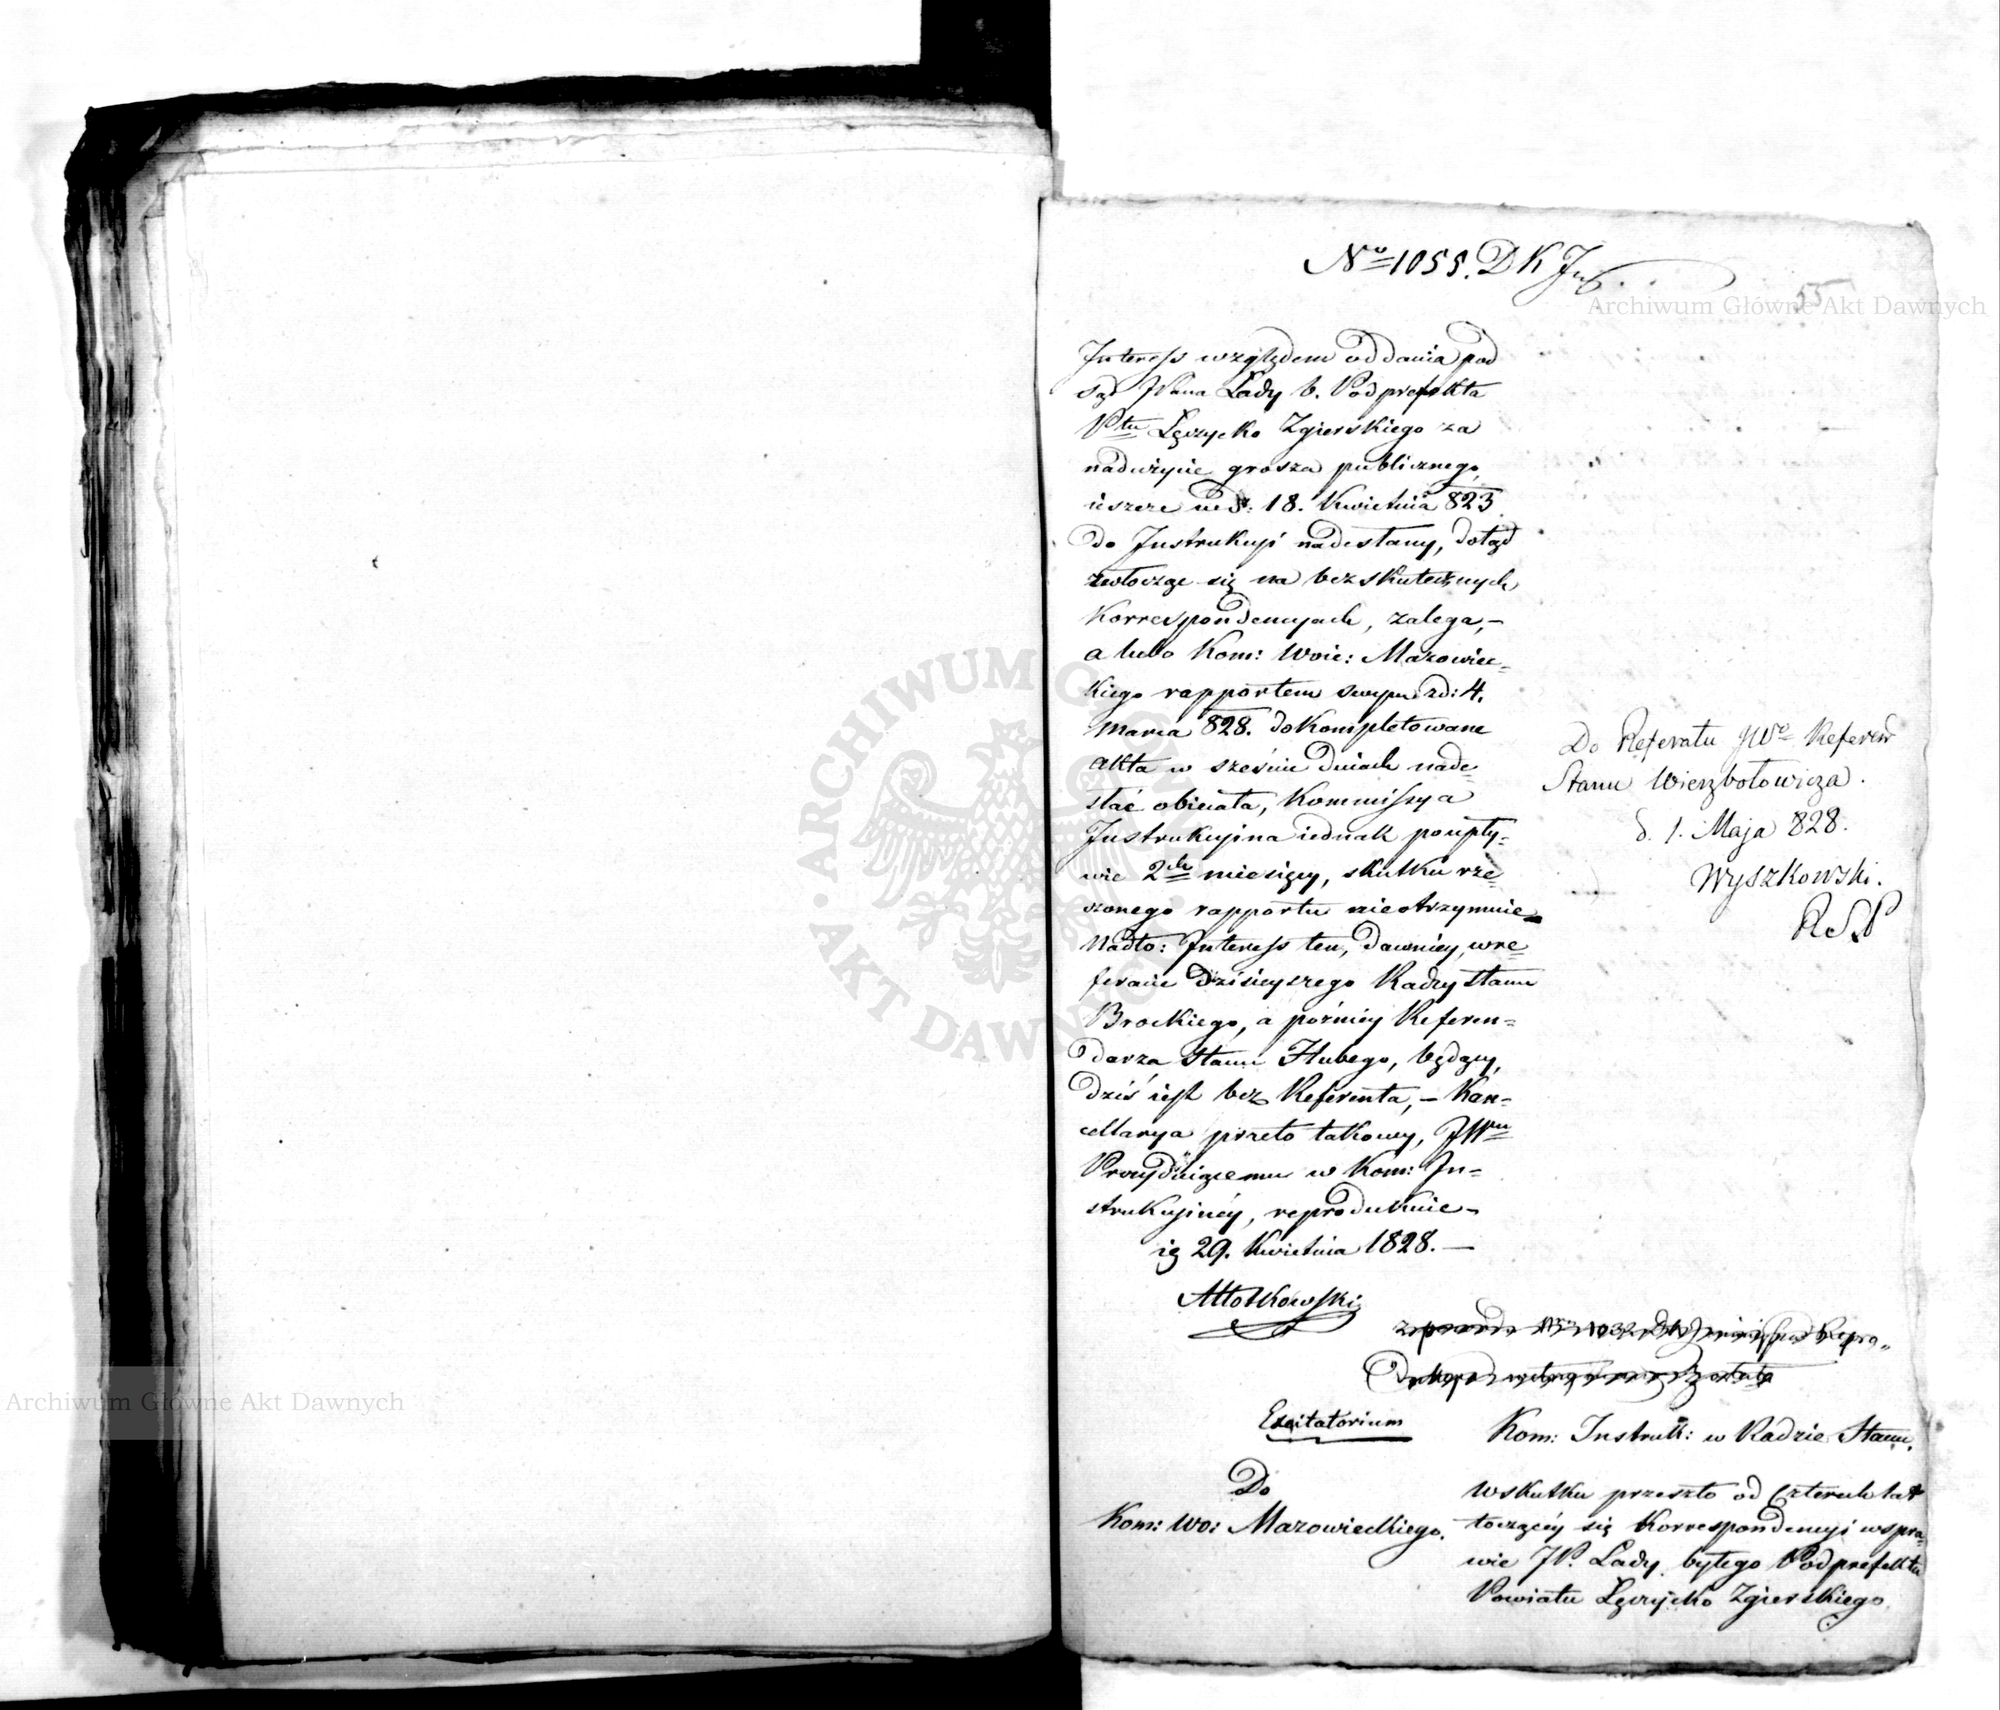 No 1055. D K
55
Interess względem oddania pod
sąd JPana Lady b. Podprefekta
Ptu Łęczycko Zgierskiego za
nadużycie grosza publicznego,
ieszcze 18. Kwietnia 823
do Instrukcyi nadesłany, dotąd
się na bezskutecznych
Korrespondencyach, zalega,–
a lubo Kom: Woie: Mazowiec=
kiego rapportem swym zd: 4.
Marca 828. dokompletowane
Akta w sześciu dniach nade=
słać obiecała, Kommissya
Instrukcyina iednak po upły=
wie 2ch miesięcy, skutku rze=
czonego rapportu nieotrzymuie
Nadto: Interess ten, dawniey, w re=
feracie dzisieyszego Radcy Stanu
Brockiego, a pózniey Referen=
darza Stanu Hubego, będący,
dziś iest bez Referenta,– Kan=
cellarya przeto takowy, JWmu
Prezyduiącemu w Kom: In=
strukcyiney, reprodukuie–
29. Kwietnia 1828.–
Do Referatu JWo Referen
Stanu Wierzbołowicza.
d. 1. Maja 828.
Wyszkowski.
RSP
Excitatorium
Kom: Instruk: w Radzie Stanu.
Do
Kom: Wo: Mazowieckiego.
Wskutku przeszło od czterech lat
toczącéy się Korrespondencyi w spra=
wie JP. Lady byłego Podprefekta
Powiatu Łęczycko Zgierskiego
Archiwum Główne Akt Dawnych
Archiwum Główne Akt Dawnych
ARCHIWUM GŁÓWNE AKT DAWNYCH